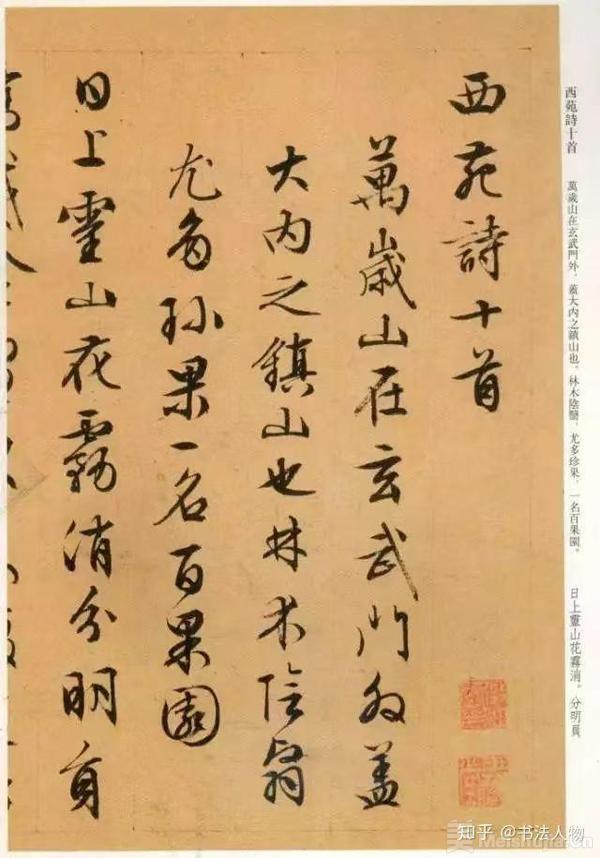 西苑詩十首　萬歲山在玄武門外，蓋大内之鎮山也。林木陰翳，尤多珍果，一名百果園。　日上靈山花霧消，分明員
西苑詩十首
萬歲山在玄武門外蓋
大内之鎮山也林木陰翳
尤多珍果一名百果園
日上靈山花霧消分明員
知乎 @书法人物
美 Meishujia.Cn